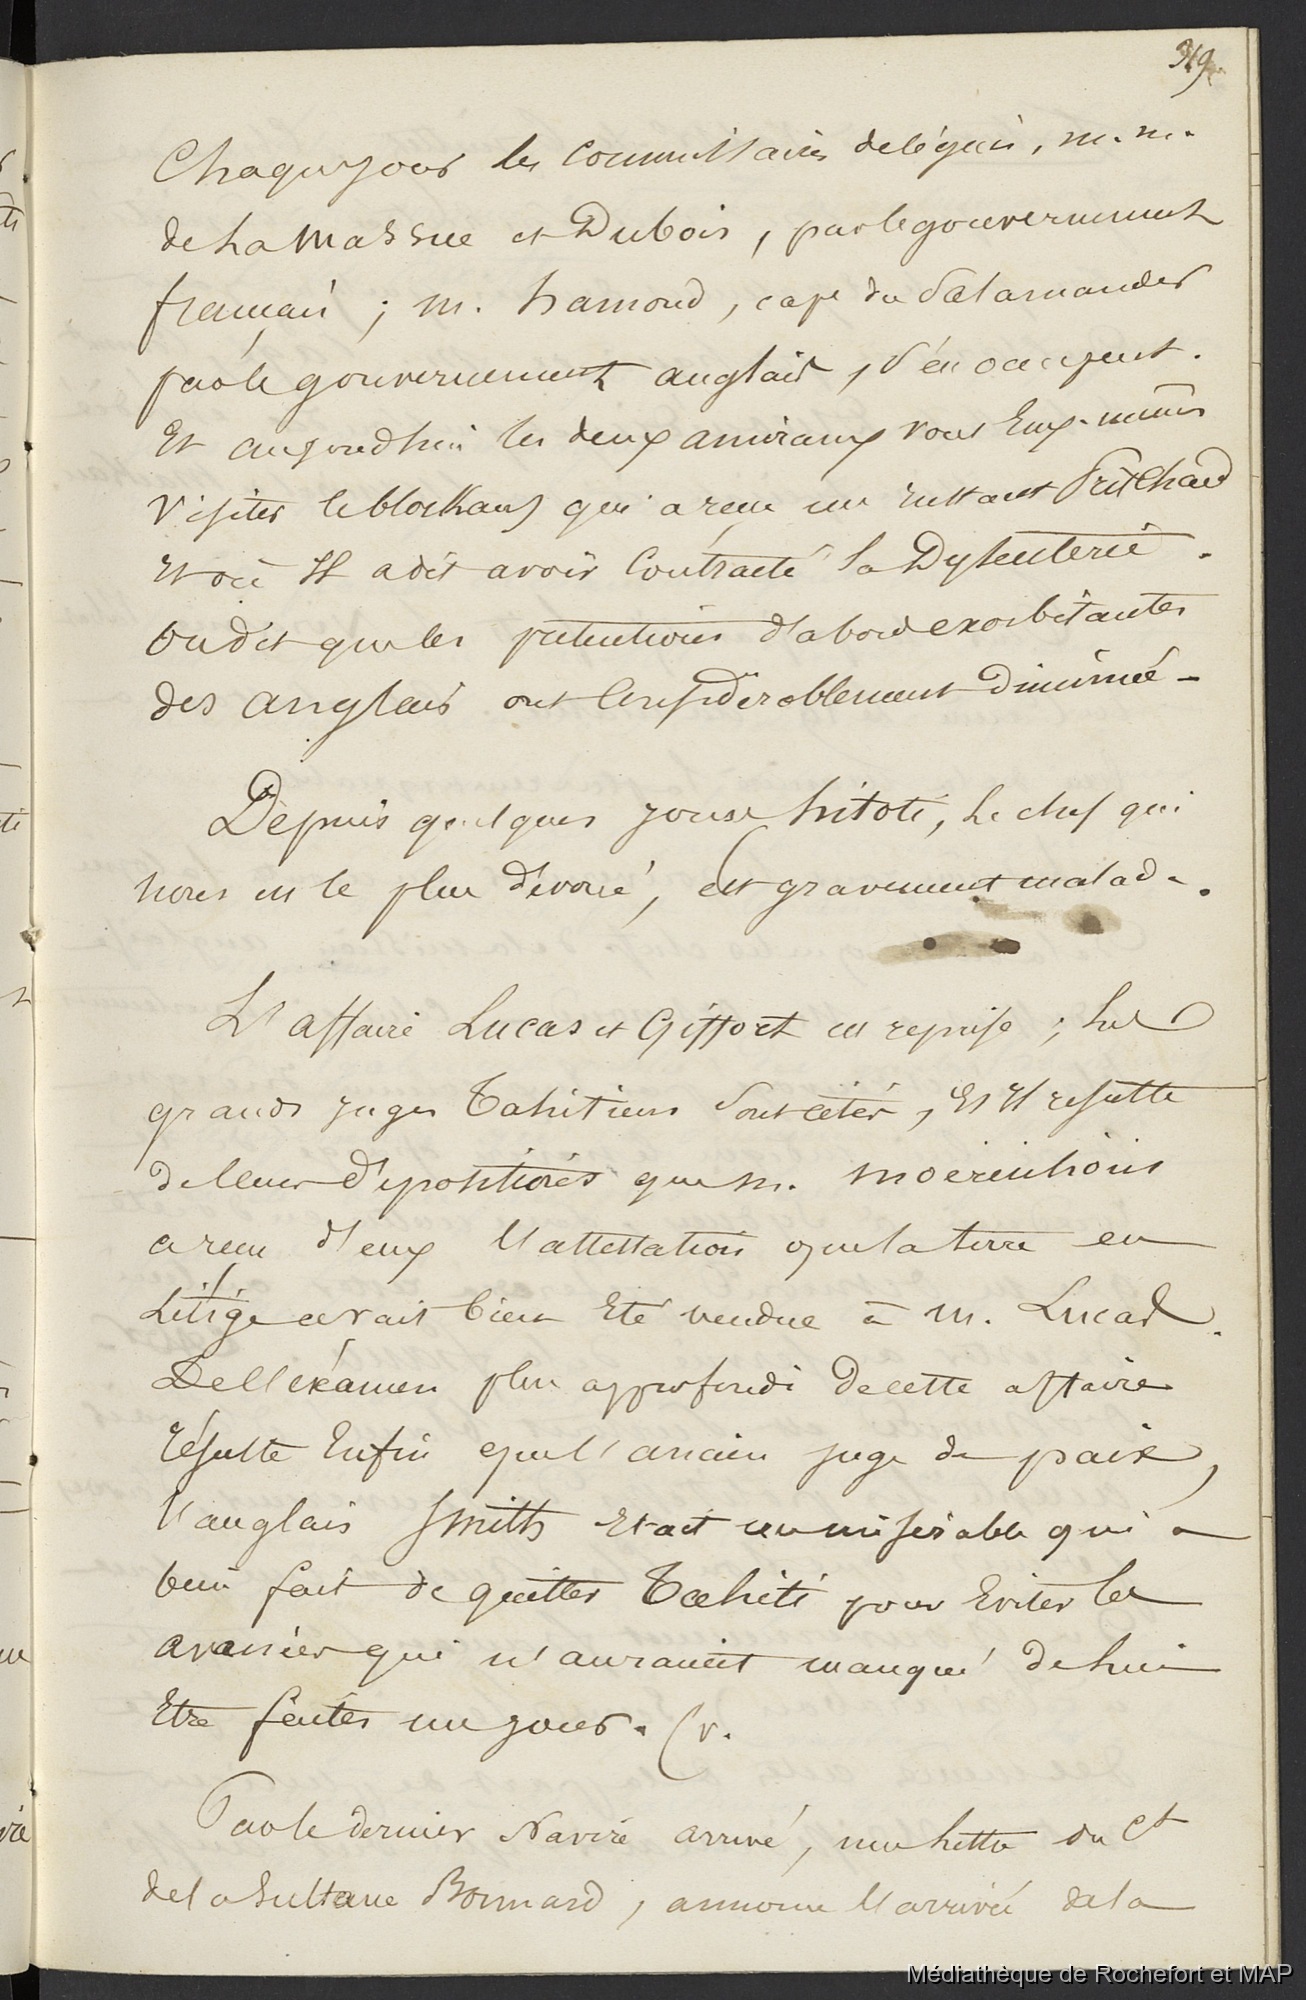 319
Chaque jour les commissaires delégués, m.m.
de La Massue et Dubois, par le gouvernement
français ; m. hamond, cape du Salamander
par le gouvernement anglais, s'en occupent.
Et aujourdhui les deux amiraux vont Eux-mêmes
visiter le blockaus qui a reçu un instant Pritchard
et où Il a dit avoir Contracté la Dysenterie.
On dit que les prétentions d'abord exorbitantes
des anglais ont Considérablement diminué -
Depuis quelques jours hitoti, le chef qui
nous est le plus dévoué, est gravement malade.
L'affaire Lucas et Giffort est reprise ; les
grands juges Tahitiens sont cités, Et Il resulte
de leurs dépositions que m. moerenhout
a reçu d'eux l'attestation que la terre en
Litige avait bien Eté vendue à m. Lucas.
De l'exámen plus approfondi de cette affaire
résulte Enfin que l'ancien juge de paix,
l'anglais Smith Etait un misérable qui a
bien fait de quitter Tahiti pour Eviter les
avanies qui n'auraient manqué de lui
Etre faites un jour. (v.
Par le dernier Navire arrivé, une lettre du Ct
de la Sultane Bonnard, annonce l'arrivée de la
Médiathèque de Rochefort et MAP